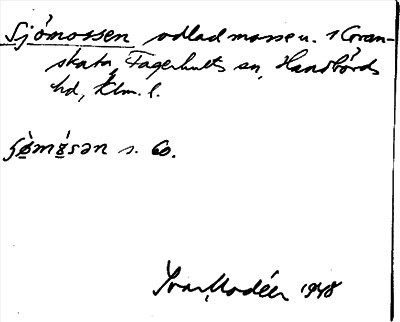 Sjömossen odlad mosse u. Gran-
skata, Fagerhults sn, Handbörds
hd, Klm. l.
s. 60.
Ivar Modéer 1948